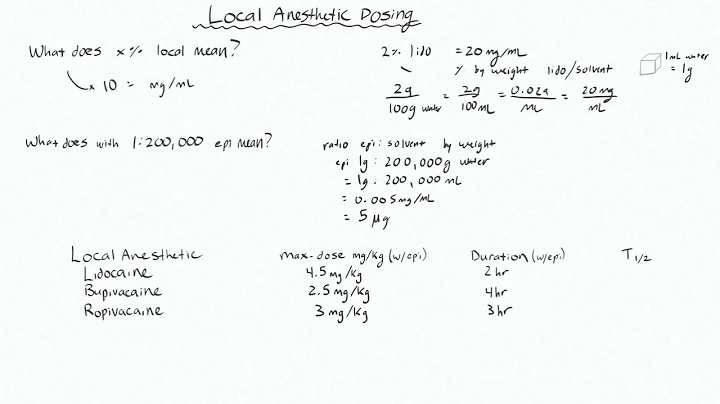 Local Anesthetic Dosing
What does x % local mean?
x 10 = mg/mL
2% lido = 20 mg/mL
% by weight lido/solvent
2g/100g water = 2g/100mL = 0.02g/mL = 20mg/mL
1mL water
= 1g
What does with 1:200,000 epi mean?
ratio epi: solvent by weight
epi 1g : 200,000g water
= 1g : 200,000 mL
= 0.005mg/mL
= 5 µg
Local Anesthetic max-dose mg/kg (w/epi) Duration (w/epi) T 1/2
Lidocaine 4.5 mg/kg 2 hr
Bupivacaine 2.5 mg/kg 4 hr
Ropivacaine 3 mg/kg 3 hr